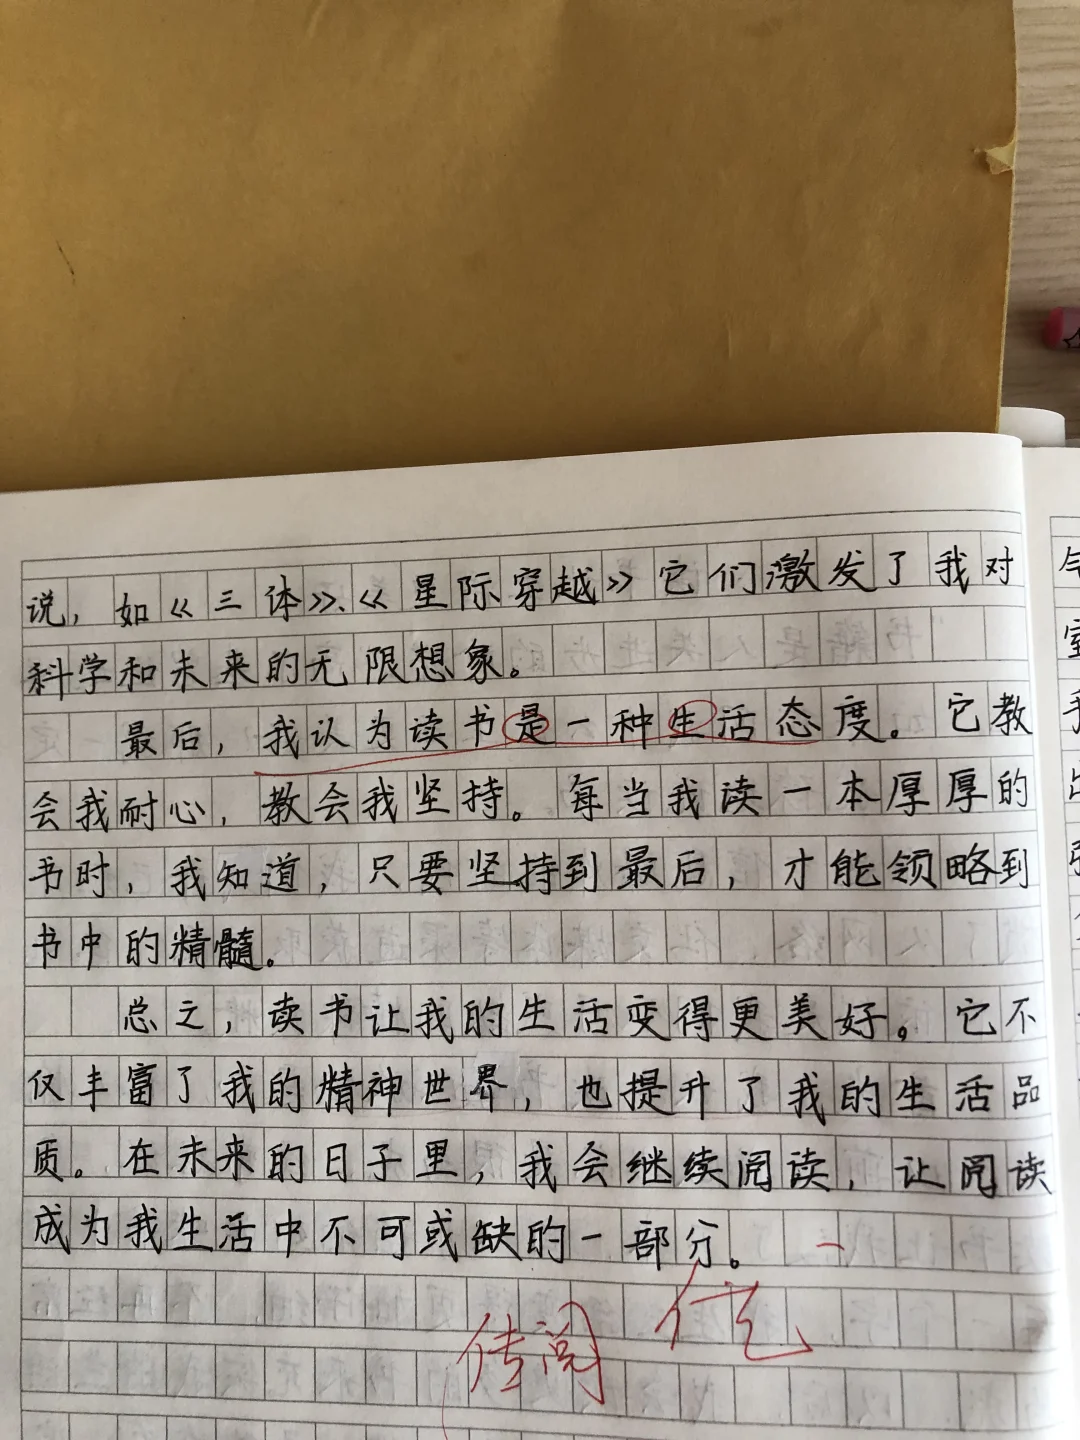 说，如《三体》、《星际穿越》它们激发了我对
科学和未来的无限想象。
最后，我认为读书是一种生活态度。它教
会我耐心，教会我坚持。每当我读一本厚厚的
书时，我知道，只要坚持到最后，才能领略到
书中的精髓。
总之，读书让我的生活变得更美好。它不
仅丰富了我的精神世界，也提升了我的生活品
质。在未来的日子里，我会继续阅读，让阅读
成为我生活中不可或缺的一部分。
传阅